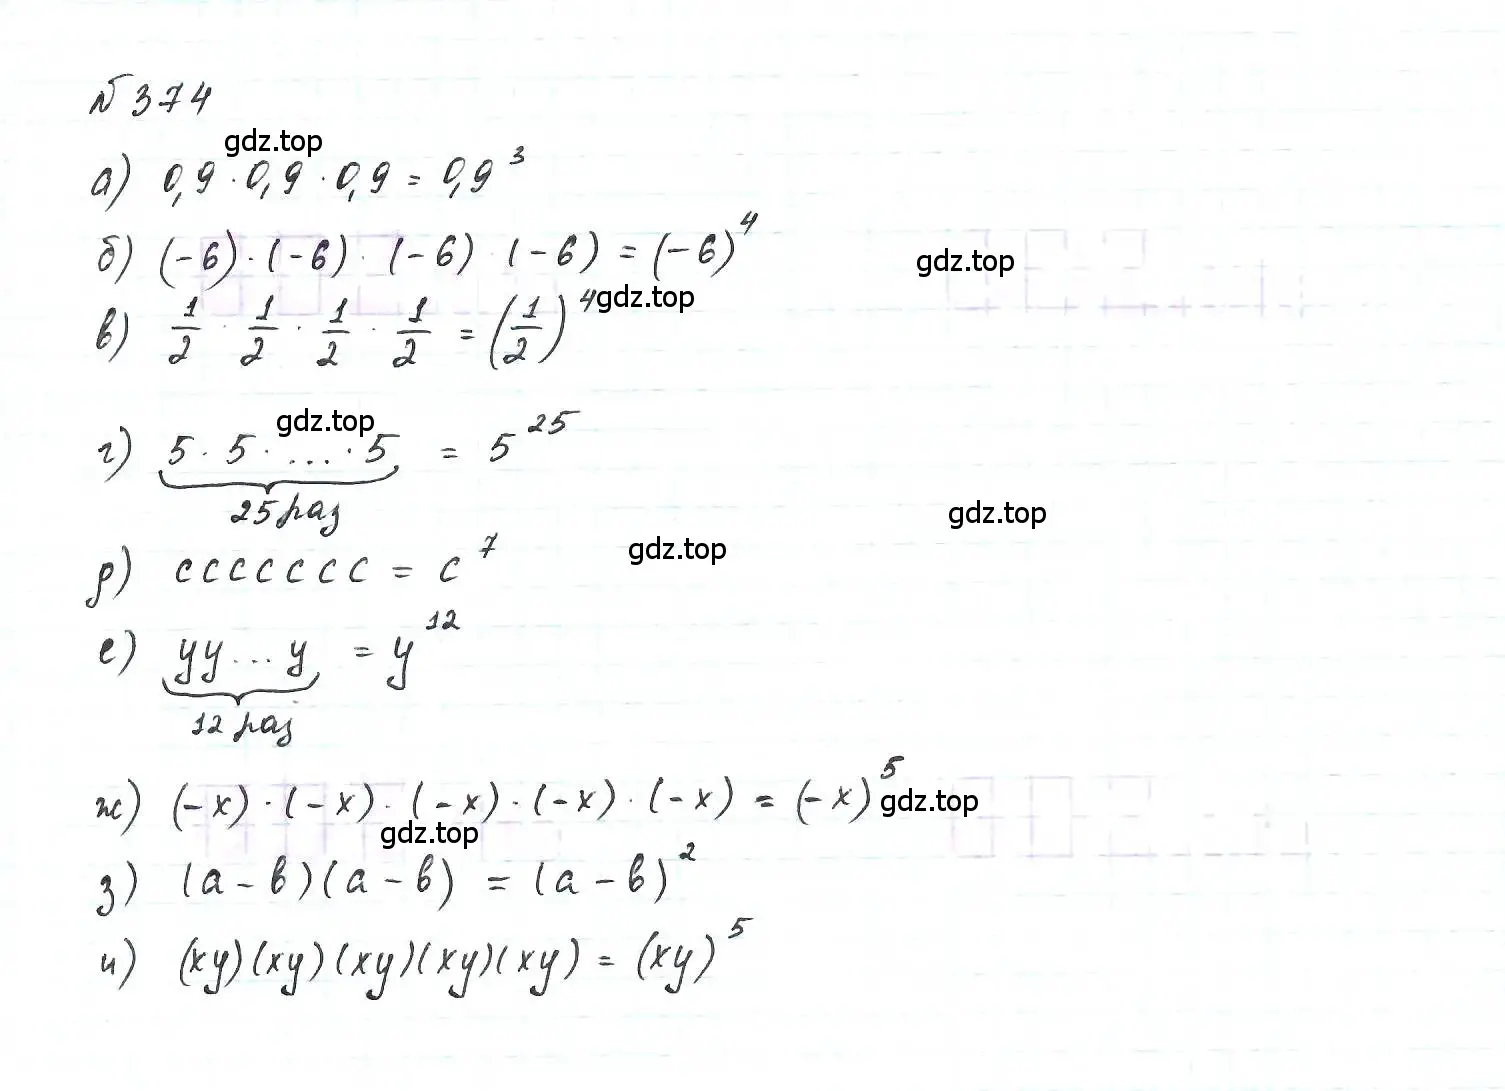 № 374
gdz.top
а) 0,9 · 0,9 · 0,9 = 0,9³
б) (-6) · (-6) · (-6) · (-6) = (-6)⁴
gdz.top
в) 1/2 · 1/2 · 1/2 · 1/2 = (1/2)⁴
gdz.top
gdz.top
г) 5 · 5 · ... · 5 = 5²⁵
25 раз
gdz.top
д) ccccccc = c⁷
gdz.top
е) yy...y = y¹²
12 раз
ж) (-x) · (-x) · (-x) · (-x) · (-x) = (-x)⁵
gdz.top
gdz.top
з) (a - b)(a - b) = (a - b)²
и) (xy)(xy)(xy)(xy)(xy) = (xy)⁵